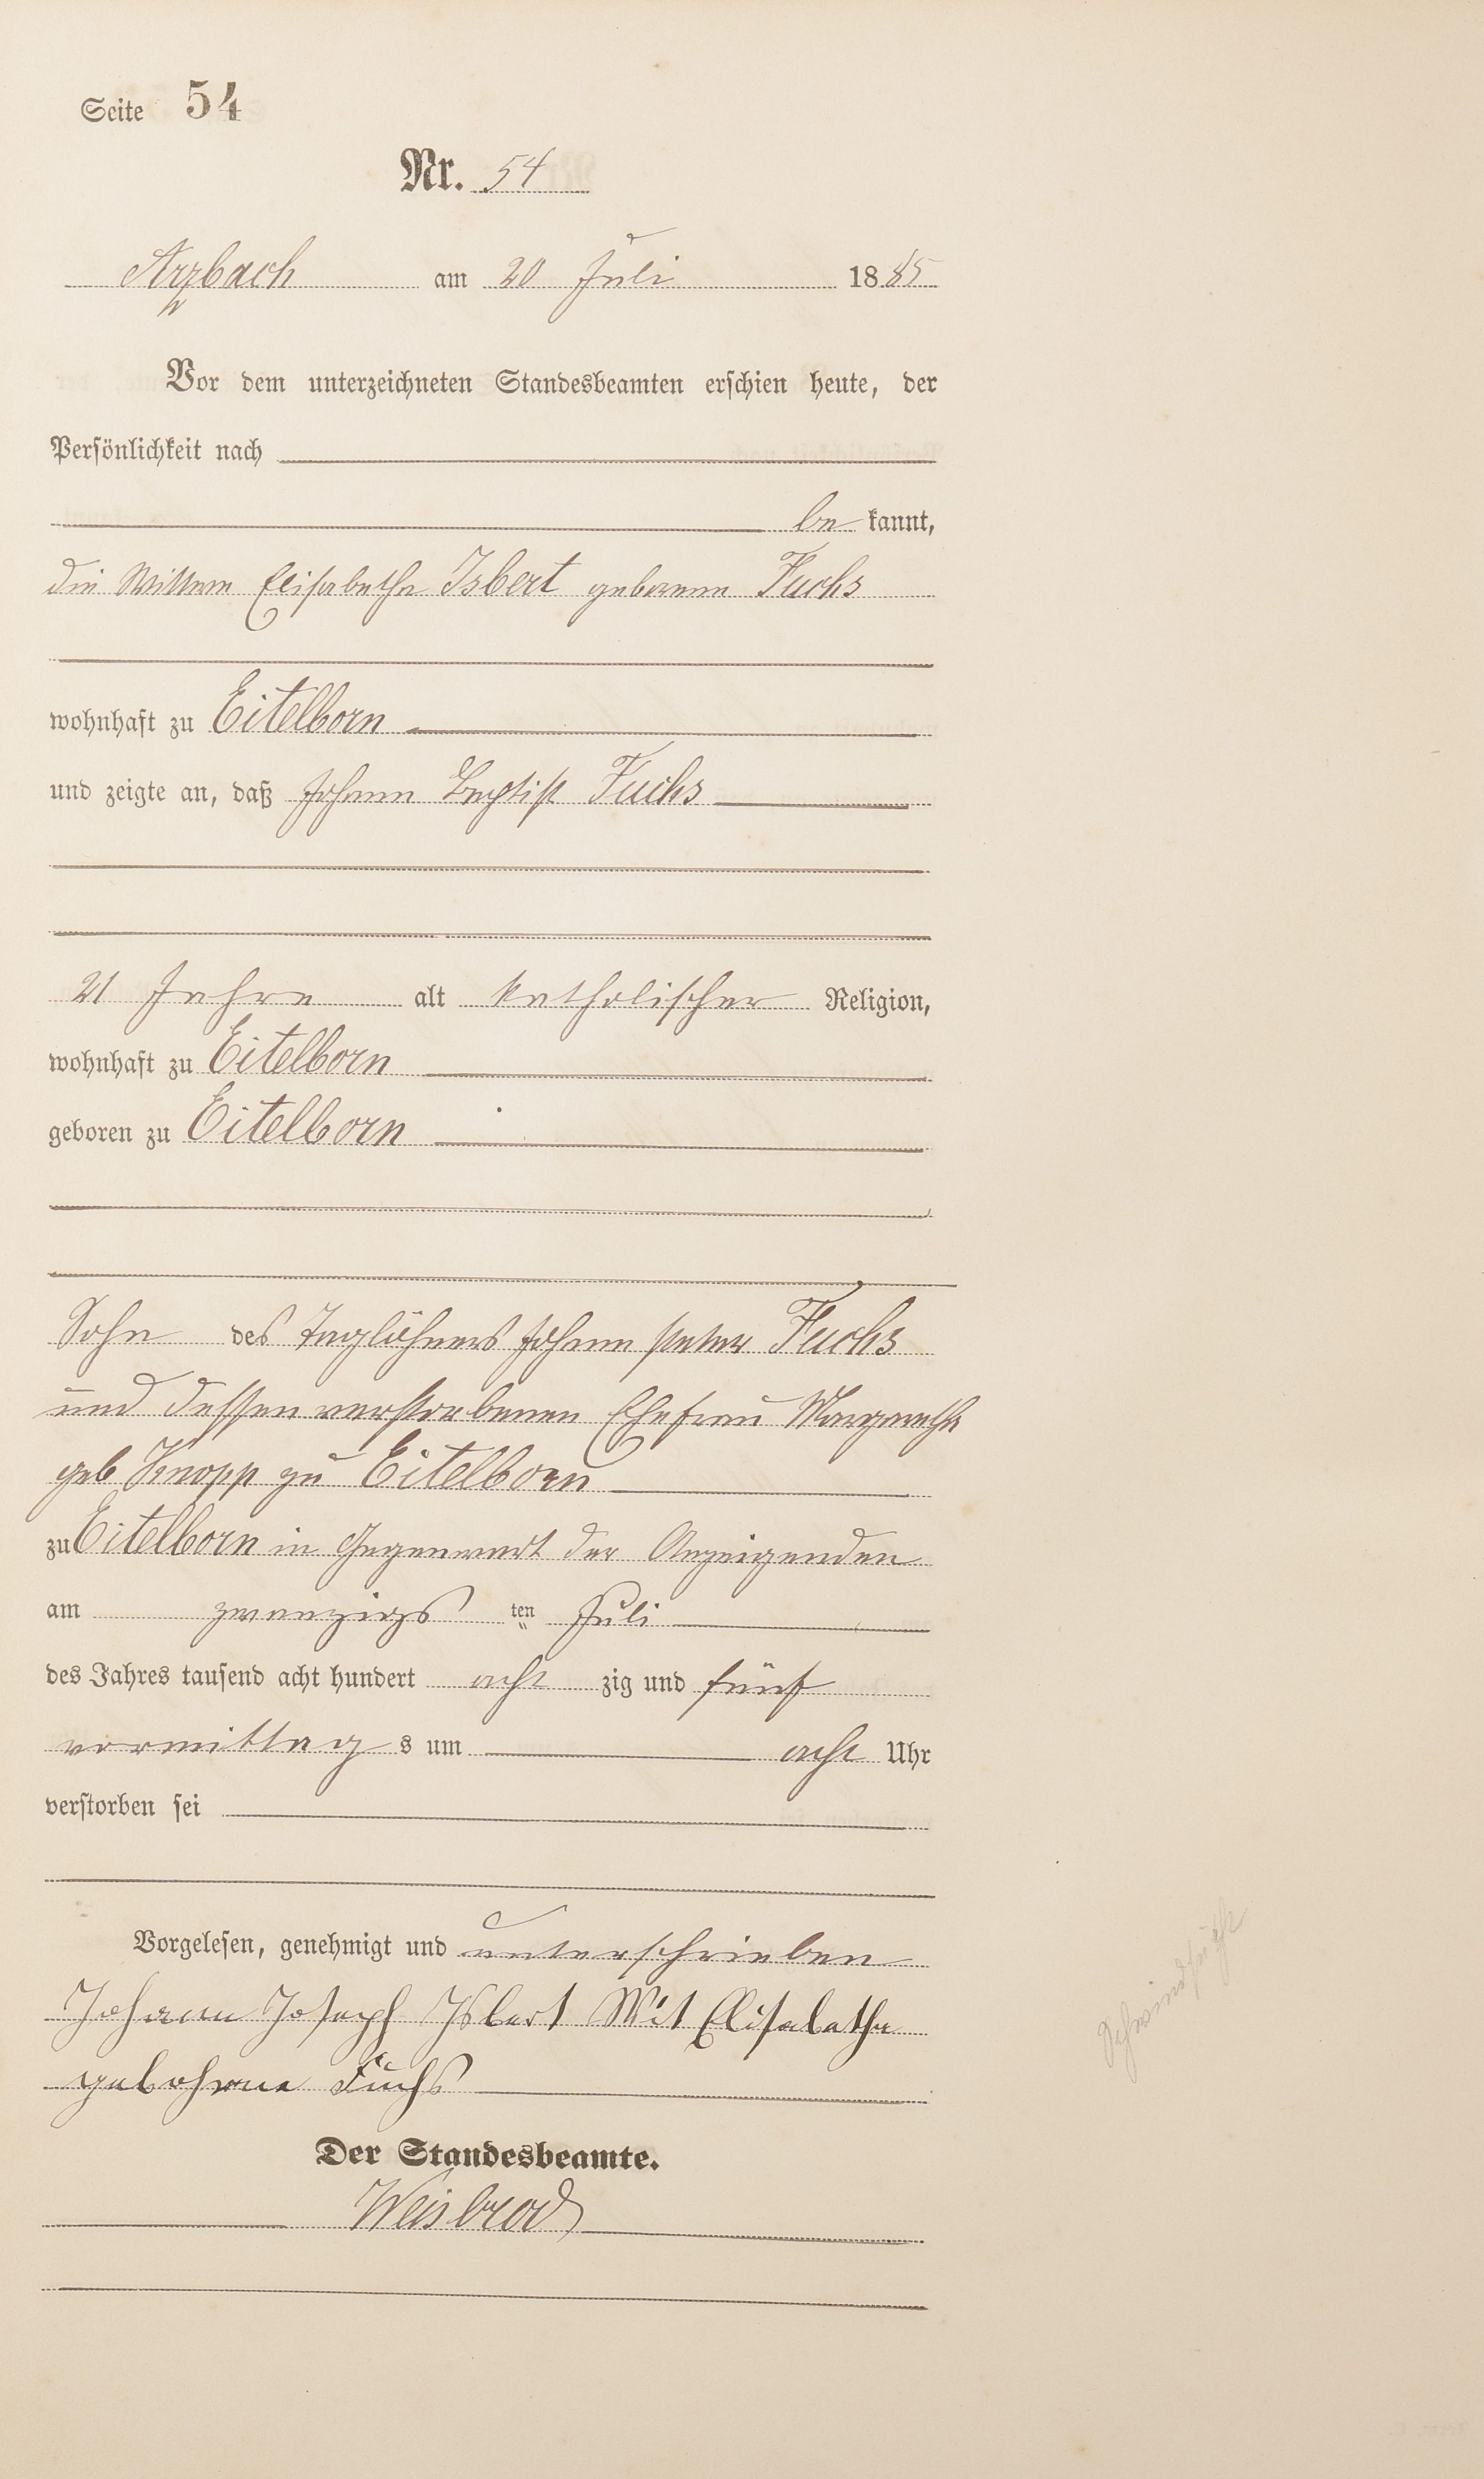 Seite 54
Nr. 54
Arzbach am 20 Juli 1885
Vor dem unterzeichneten Standesbeamten erschien heute, der
Persönlichkeit nach
be kannt,
die Wittwe Elisabetha Isbert geborene Fuchs
wohnhaft zu Eitelborn
und zeigte an, daß Johann Baptist Fuchs
21 Jahre alt katholischer Religion,
wohnhaft zu Eitelborn
geboren zu Eitelborn
Sohn des Taglöhners Johann Peter Fuchs
und dessen verstorbenen Ehefrau Margaretha
geb Knopp zu Eitelborn
zu Eitelborn in Gegenwart der Anzeigenden
am zwanzigs ten Juli
des Jahres tausend acht hundert acht zig und fünf
vormittag s um acht Uhr
verstorben sei
Vorgelesen, genehmigt und unterschrieben
Johann Joseph Isbert Wit Elisabetha
gebohrne Fuchs
Der Standesbeamte.
Weisbrod
Schwindsucht